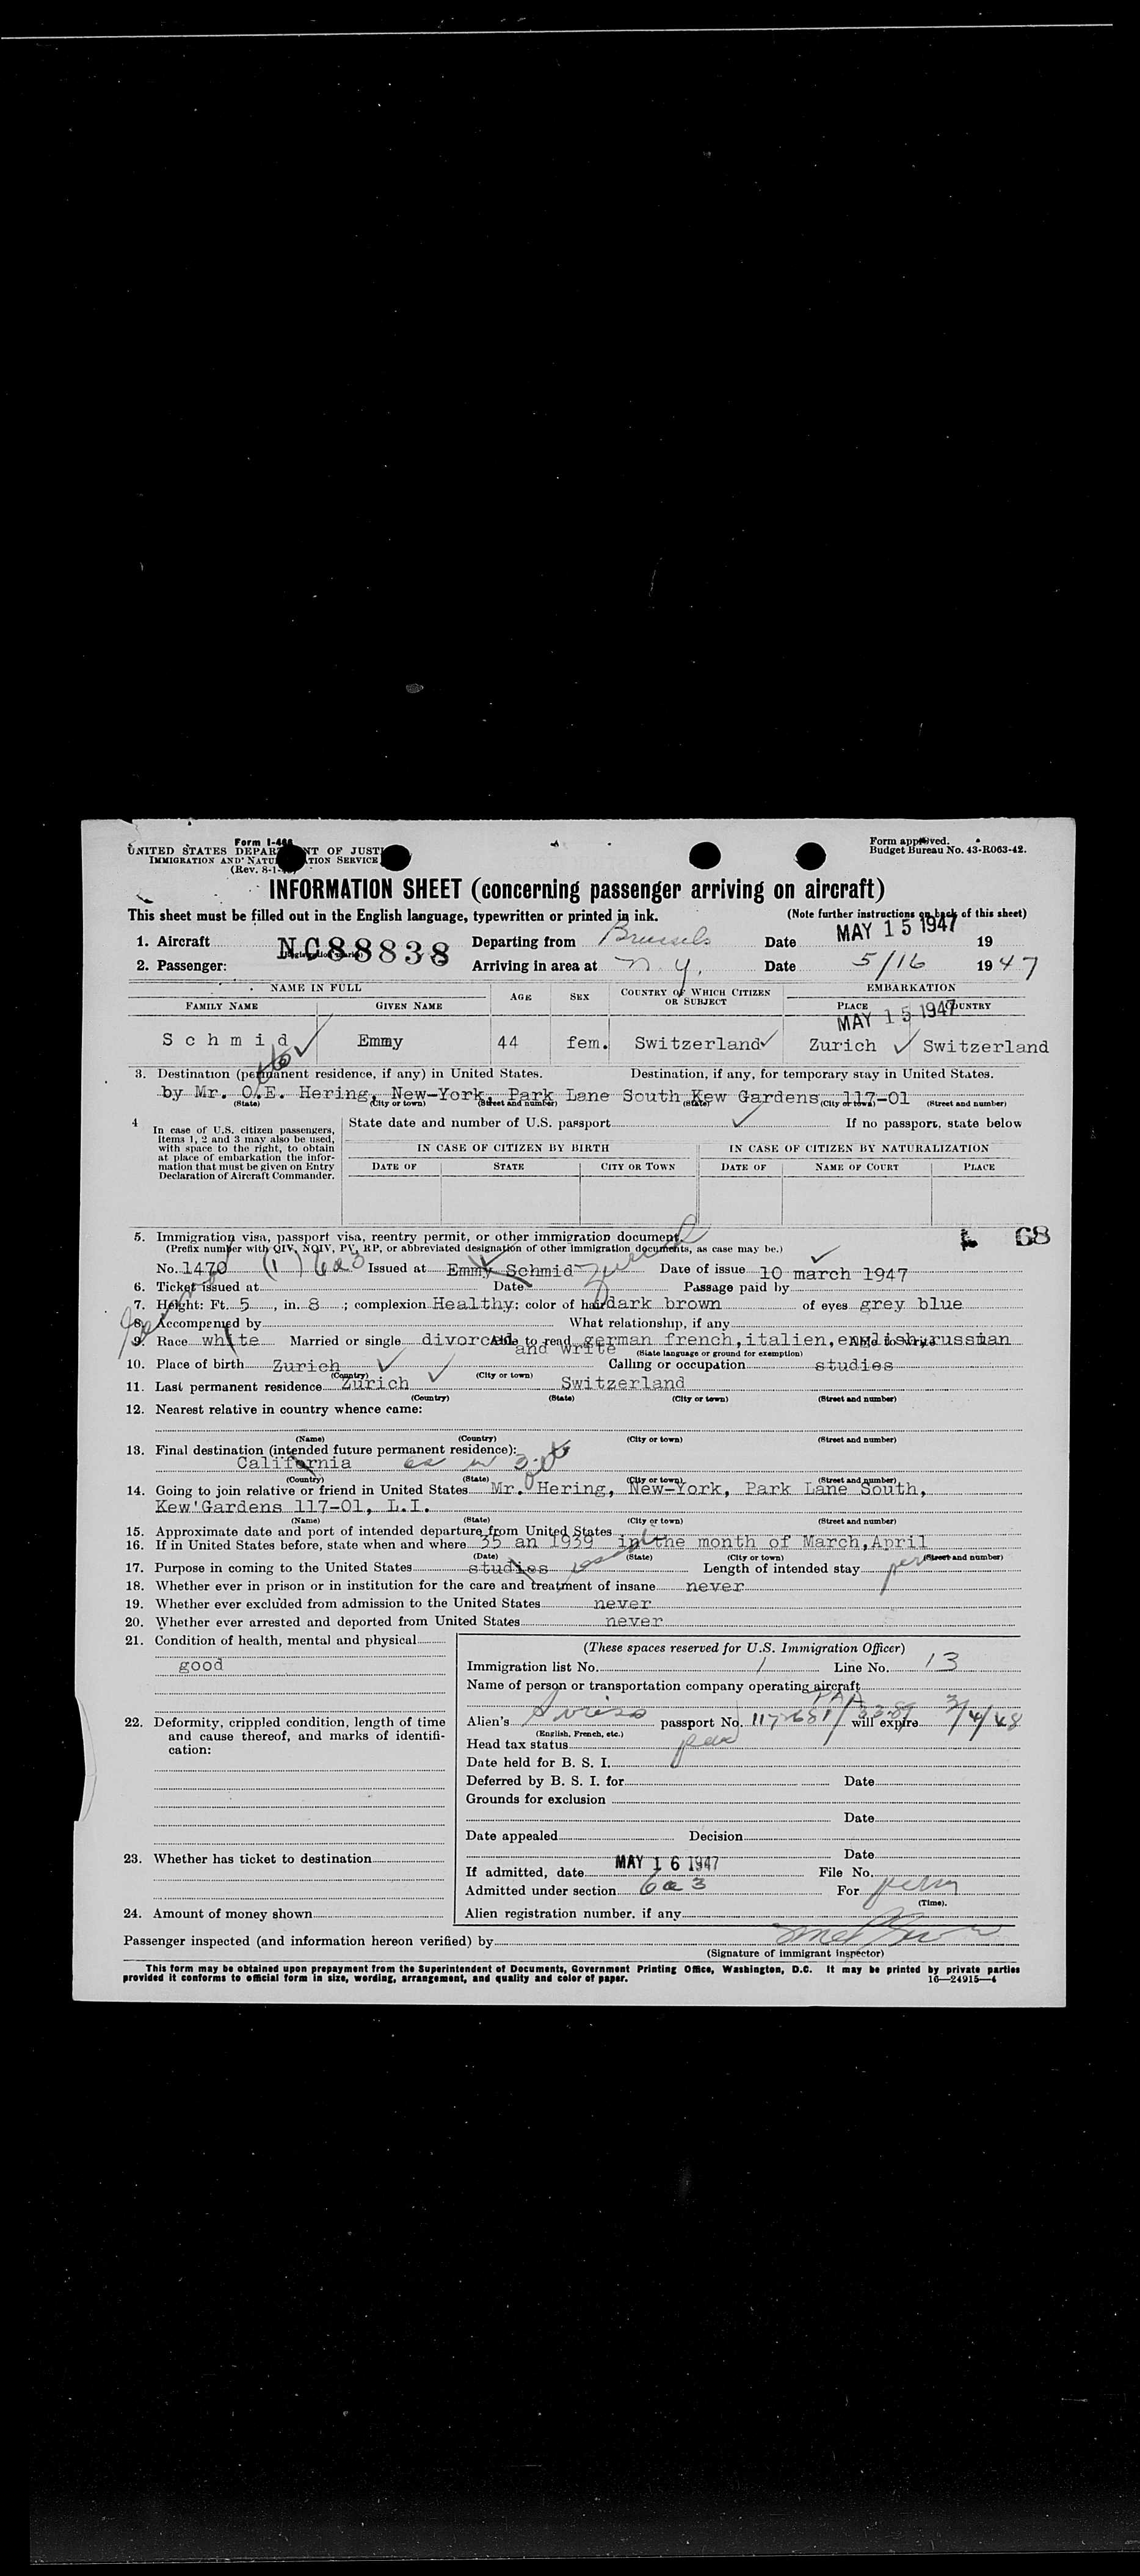 Form I-466
UNITED STATES DEPARTMENT OF JUSTICE
IMMIGRATION AND NATURALIZATION SERVICE
(Rev. 8-1-
Form approved.
Budget Bureau No. 43-R063-42.
INFORMATION SHEET (concerning passenger arriving on aircraft)
This sheet must be filled out in the English language, typewritten or printed in ink. (Note further instructions on back of this sheet)
1. Aircraft NC88838 Departing from Brussels Date MAY 15 1947 19
2. Passenger: Arriving in area at N.Y. Date 5/16 1947
NAME IN FULL AGE SEX COUNTRY OF WHICH CITIZEN OR SUBJECT EMBARKATION
FAMILY NAME GIVEN NAME PLACE COUNTRY
MAY 15 1947
Schmid Emmy 44 fem. Switzerland Zurich Switzerland
3. Destination (permanent residence, if any) in United States. Destination, if any, for temporary stay in United States.
by Mr. O.E. Hering, New-York, Park Lane South Kew Gardens 117-01
(State) (City or town) (Street and number) (State) (City or town) (Street and number)
4 In case of U.S. citizen passengers, items 1, 2 and 3 may also be used, with space to the right, to obtain at place of embarkation the information that must be given on Entry Declaration of Aircraft Commander.
State date and number of U.S. passport If no passport, state below
IN CASE OF CITIZEN BY BIRTH IN CASE OF CITIZEN BY NATURALIZATION
DATE OF STATE CITY OR TOWN DATE OF NAME OF COURT PLACE
5. Immigration visa, passport visa, reentry permit, or other immigration document 68
(Prefix number with QIV, NQIV, PV, RP, or abbreviated designation of other immigration documents, as case may be.)
No. 1470 (1) 6a3 Issued at Emmy Schmid Zurich Date of issue 10 march 1947
6. Ticket issued at Date Passage paid by
7. Height: Ft. 5, in. 8; complexion Healthy: color of hair dark brown of eyes grey blue
8. Accompanied by What relationship, if any
9. Race white Married or single divorced Able to read german french, italien, english, russian
and write (State language or ground for exemption)
10. Place of birth Zurich Calling or occupation studies
(Country) (City or town)
11. Last permanent residence Zurich Switzerland
(Country) (State) (City or town) (Street and number)
12. Nearest relative in country whence came:
(Name) (Country) (City or town) (Street and number)
13. Final destination (intended future permanent residence):
California as in 3
(Country) (State) (City or town) (Street and number)
14. Going to join relative or friend in United States Mr. Hering, New-York, Park Lane South,
Kew Gardens 117-01, L.I.
(Name) (State) (City or town) (Street and number)
15. Approximate date and port of intended departure from United States
16. If in United States before, state when and where 35 an 1939 in the month of March, April
(Date) (State) (City or town) (Street and number)
17. Purpose in coming to the United States studies Length of intended stay perm
18. Whether ever in prison or in institution for the care and treatment of insane never
19. Whether ever excluded from admission to the United States never
20. Whether ever arrested and deported from United States never
21. Condition of health, mental and physical
good
22. Deformity, crippled condition, length of time and cause thereof, and marks of identification:
23. Whether has ticket to destination
24. Amount of money shown
(These spaces reserved for U.S. Immigration Officer)
Immigration list No. 1 Line No. 13
Name of person or transportation company operating aircraft
PAA
Alien's Swiss passport No. will expire 3/4/48
(English, French, etc.)
Head tax status
Date held for B. S. I.
Deferred by B. S. I. for Date
Grounds for exclusion
Date
Date appealed Decision
Date
If admitted, date MAY 16 1947 File No.
Admitted under section 6a3 For perm
(Time).
Alien registration number, if any
Passenger inspected (and information hereon verified) by
(Signature of immigrant inspector)
This form may be obtained upon prepayment from the Superintendent of Documents, Government Printing Office, Washington, D.C. It may be printed by private parties
provided it conforms to official form in size, wording, arrangement, and quality and color of paper. 16—24915—4